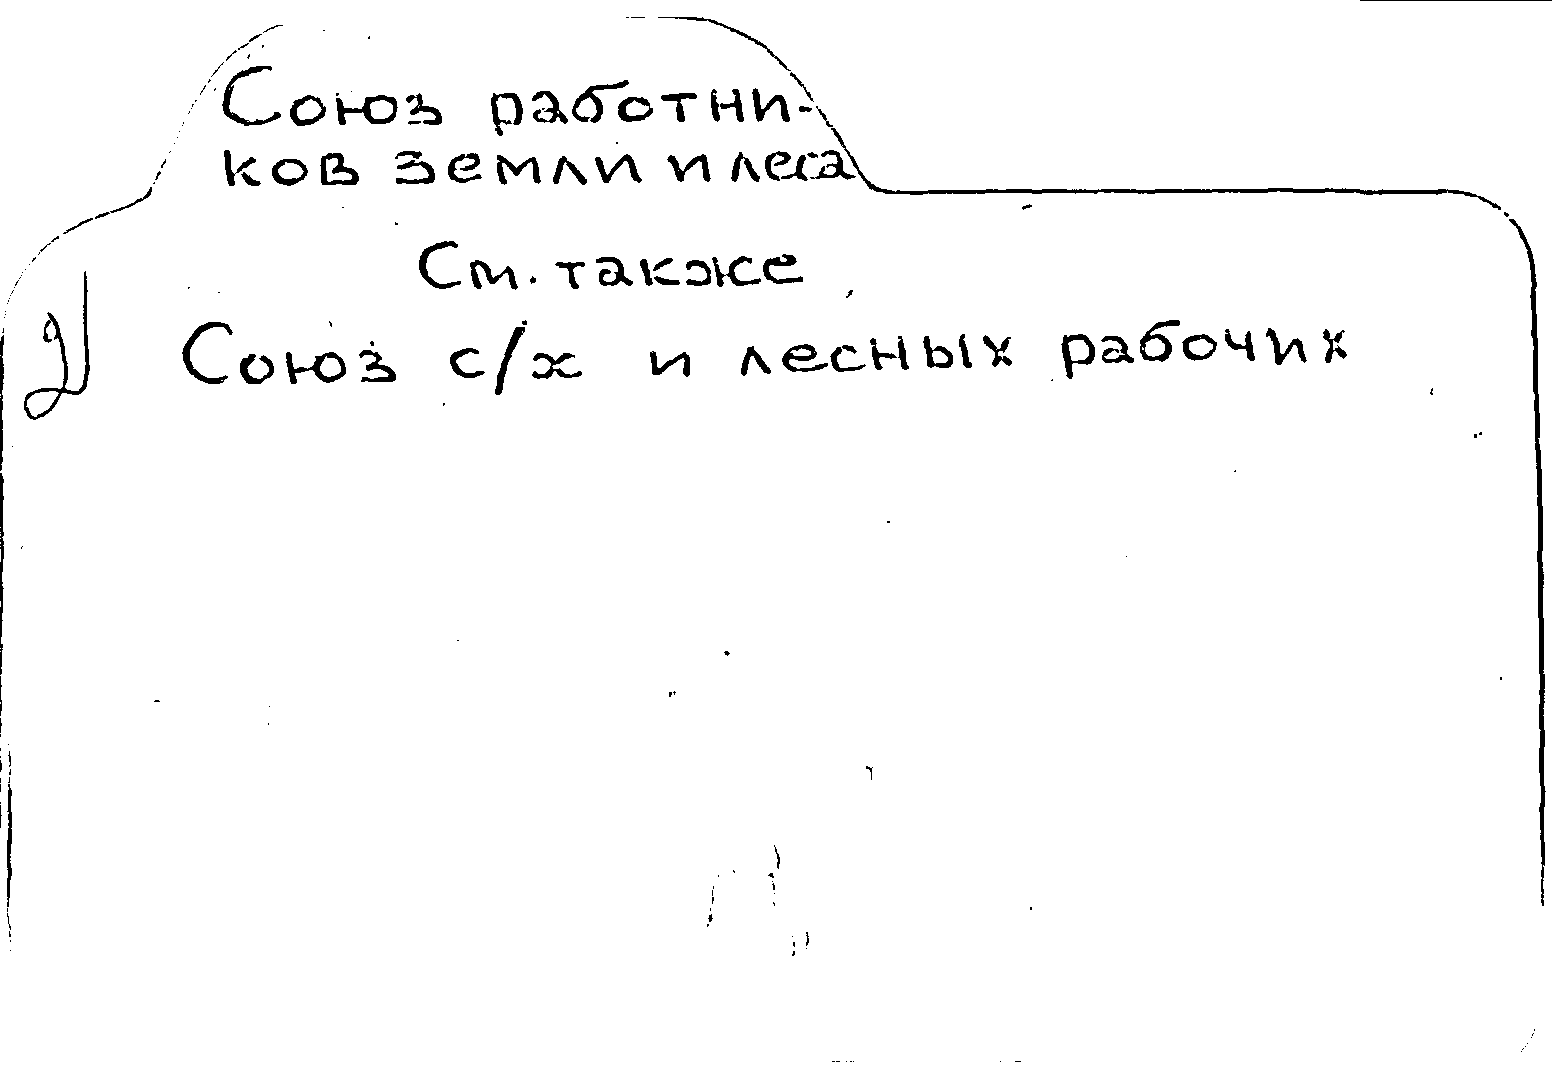 Союз работни-
ков земли и леса
См. также
Союз с/х и лесных рабочих